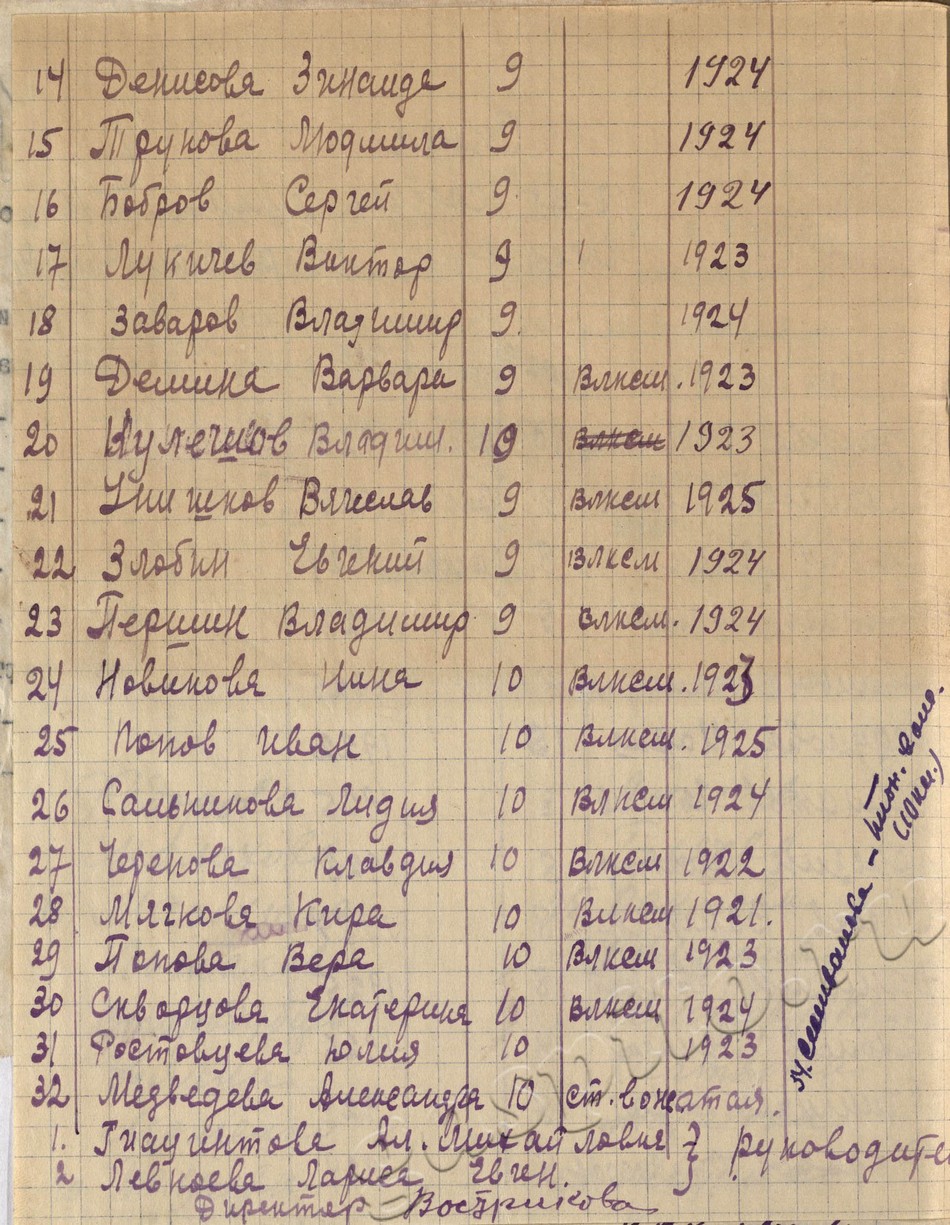 14 Денисова Зинаида 9 1924
15 Трунова Людмила 9 1924
16 Бобров Сергей 9 1924
17 Лукичев Виктор 9 1923
18 Заваров Владимир 9 1924
19 Демина Варвара 9 Влксм. 1923
20 Кулешов Владим. 10 Влксм 1923
21 Вячеслав 9 Влксм 1925
22 Злобин Евгений 9 Влксм 1924
23 Першин Владимир 9 Влксм. 1924
24 Новикова Нина 10 Влксм. 1923
25 Попов Иван 10 Влксм. 1925
26 Сальникова Лидия 10 Влксм 1924
27 Черепова Клавдия 10 Влксм 1922
28 Мягкова Кира 10 Влксм 1921.
29 Попова Вера 10 Влксм 1923
30 Скворцова Екатерина 10 Влксм 1924
31 Ростовцева Юлия 10 1923
32 Медведева Александра 10 ст. вожатая.
1. Гиацинтова Ал. Михайловна } руководите
2 Левкоева Лариса Евген.
Директор Вострикова
Селиванова –